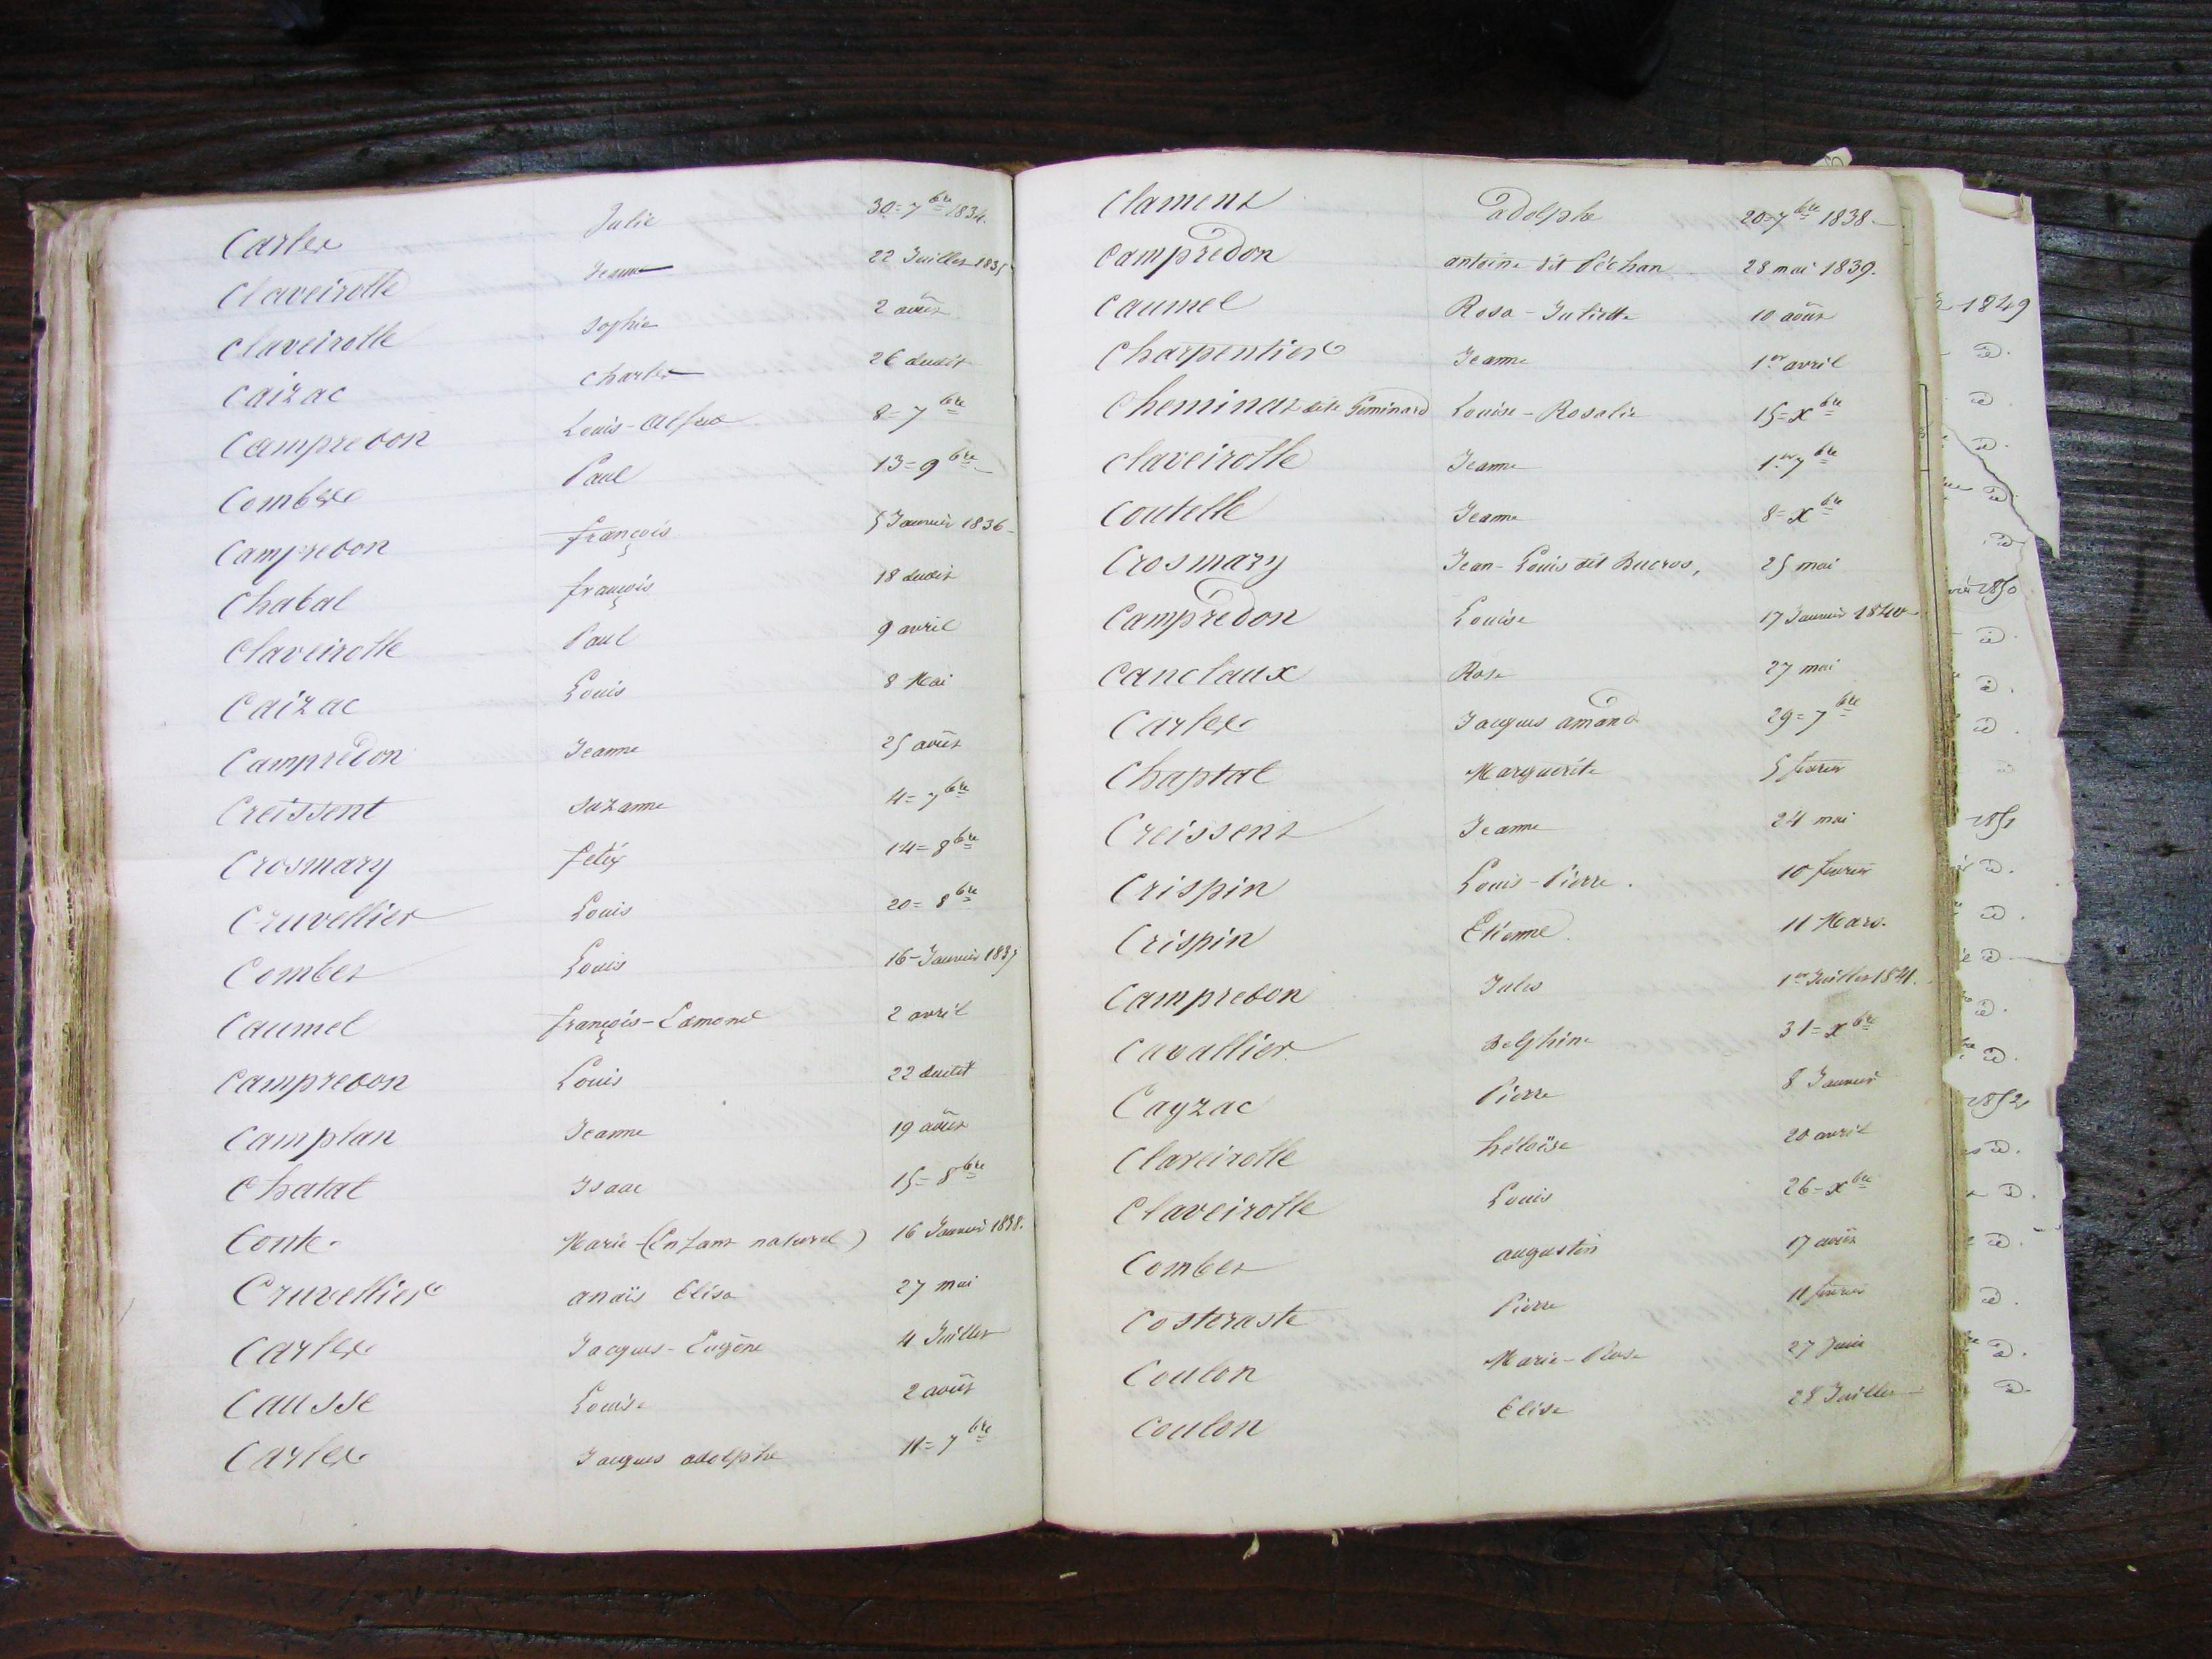 Carles Julie 30=7bre 1834.
Claveirolle Jeanne 22 Juillet 1835
Claveirolle Sophie 2 août
Caizac Charles 26 dudit
Campredon Louis-Alfred 8=7bre
Combes Paul 13=9bre
Campredon françois 5 Janvier 1836
Chabal françois 18 dudit
Claveirolle Paul 9 avril
Caizac Louis 8 Mai
Campredon Jeanne 25 août
Creissent Suzanne 4=7bre
Crosmary félix 14=8bre
Cruvellier Louis 20=8bre
Combes Louis 16=Janvier 1837
Caumel françois-Edmond 2 avril
Campredon Louis 22 dudit
Camplan Jeanne 19 août
Chatal Isaac 15=8bre
Conte Marie-(Enfant naturel) 16 Janvier 1838.
Cruvellier anaïs Elisa 27 mai
Carles Jacques-Eugène 4 Juillet
Causse Louise 2 août
Carles Jacques adolphe 11=7bre
Clament adolphe 20=7bre 1838
Campredon antoine dit Péchan 28 mai 1839.
Caumel Rosa-Juliette 10 août
Charpentier Jeanne 1er avril
Cheminat dite Géminard Louise-Rosalie 15=xbre
Claveirolle Jeanne 1er 7bre
Coutelle Jeanne 8=xbre
Crosmary Jean-Louis dit Ducros, 25 mai
Campredon Louise 17 Janvier 1840
Canclaux Rose 27 mai
Carles Jacques amand 29=7bre
Chaptal Marguerite 5 fevrier
Creissent Jeanne 24 mai
Crispin Louis-Pierre. 10 fevrier
Crispin Etienne 11 Mars.
Campredon Jules 1er Juillet 1841.
Cavallier Delphine 31=xbre
Cayzac Pierre 8 Janvier
Claveirolle héloïse 20 avril
Claveirolle Louis 26=xbre
Combes augustin 17 août
Costeraste Pierre 11 fevrier
Coulon Marie-Rose 27 Juin
Coulon Elise 28 Juillet
1849
1850
1851
1852